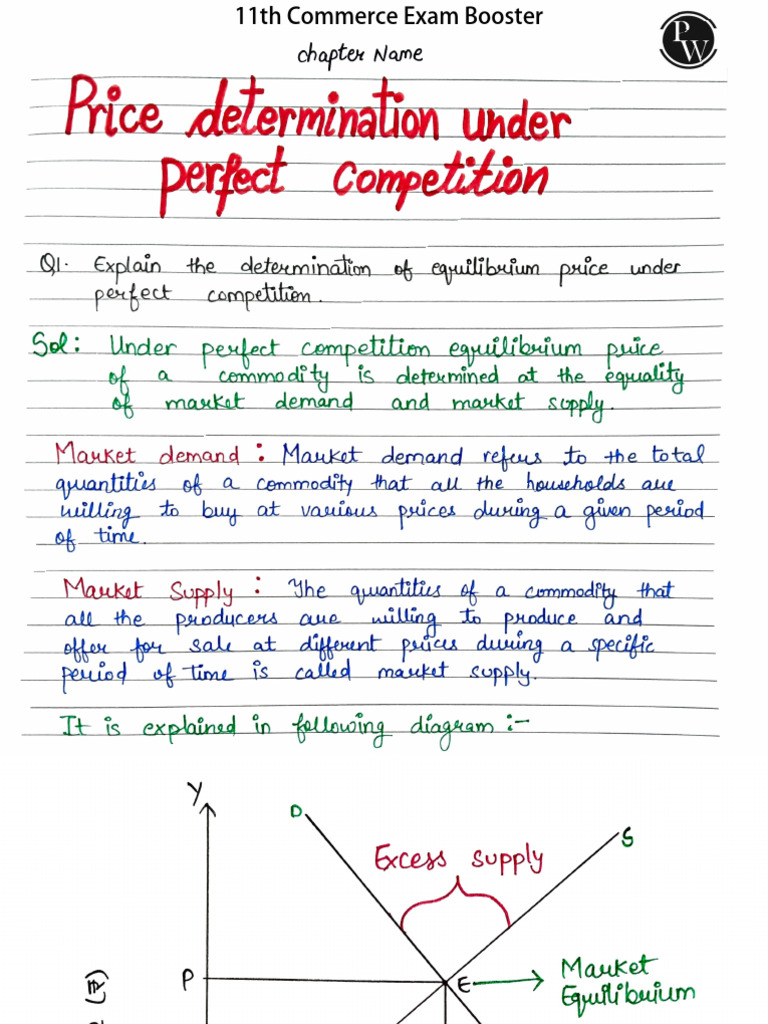 11th Commerce Exam Booster
PW
chapter Name
Price determination under
perfect competition
Q1. Explain the determination of equilibrium price under
perfect competition.
Sol: Under perfect competition equilibrium price
of a commodity is determined at the equality
of market demand and market supply.
Market demand : Market demand refers to the total
quantities of a commodity that all the households are
willing to buy at various prices during a given period
of time.
Market Supply : The quantities of a commodity that
all the producers are willing to produce and
offer for sale at different prices during a specific
period of time is called market supply.
It is explained in following diagram :-
Y
D
S
Excess supply
P
E
Market
Equilibrium
(₹)